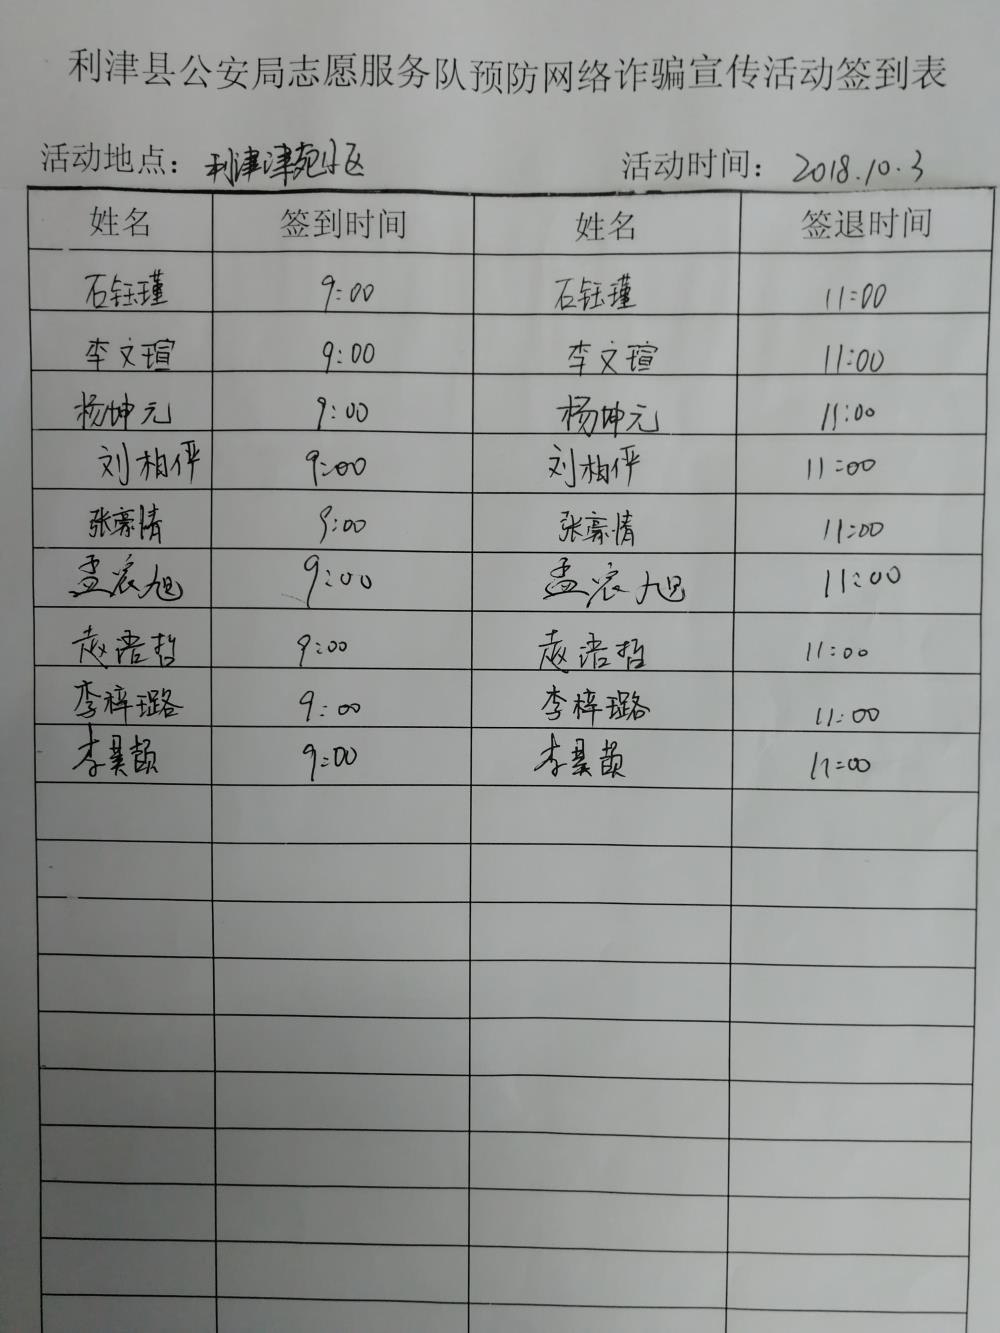 利津县公安局志愿服务队预防网络诈骗宣传活动签到表
活动地点：利津津苑小区 活动时间：2018.10.3
姓名 签到时间 姓名 签退时间
石钰瑾 9:00 石钰瑾 11:00
李文瑄 9:00 李文瑄 11:00
杨坤元 9:00 杨坤元 11:00
刘柏伻 9:00 刘柏伻 11:00
张豪情 9:00 张豪情 11:00
孟宸旭 9:00 孟宸旭 11:00
赵浩哲 9:00 赵浩哲 11:00
李梓璐 9:00 李梓璐 11:00
李昊颉 9:00 李昊颉 11:00